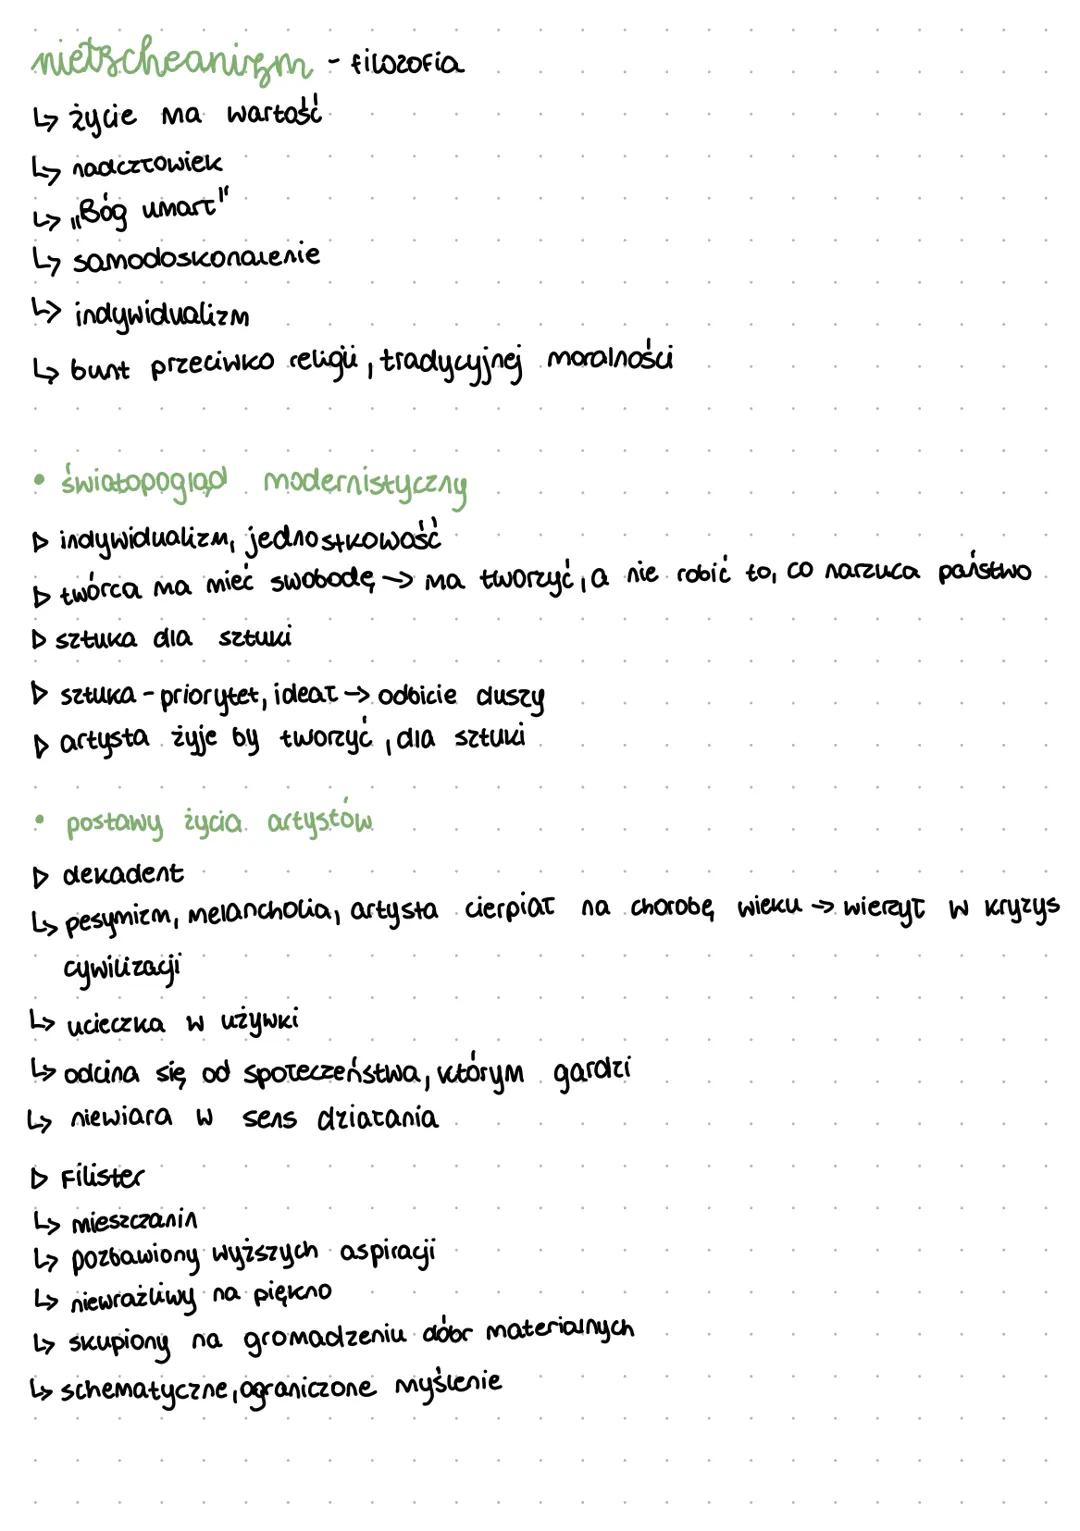 nietzscheanizm - filozofia
↳ życie ma wartość
↳ nadczłowiek
↳ „Bóg umarł"
↳ samodoskonalenie
↳ indywidualizm
↳ bunt przeciwko religii, tradycyjnej moralności
• światopogląd modernistyczny
▷ indywidualizm, jednostkowość
▷ twórca ma mieć swobodę → ma tworzyć, a nie robić to, co narzuca państwo
▷ sztuka dla sztuki
▷ sztuka - priorytet, ideał → odbicie duszy
▷ artysta żyje by tworzyć, dla sztuki
• postawy życia artystów
▷ dekadent
↳ pesymizm, melancholia, artysta cierpiał na chorobę wieku → wierzył w kryzys
cywilizacji
↳ ucieczka w używki
↳ odcina się od społeczeństwa, którym gardzi
↳ niewiara w sens działania
▷ Filister
↳ mieszczanin
↳ pozbawiony wyższych aspiracji
↳ niewrażliwy na piękno
↳ skupiony na gromadzeniu dóbr materialnych
↳ schematyczne, ograniczone myślenie